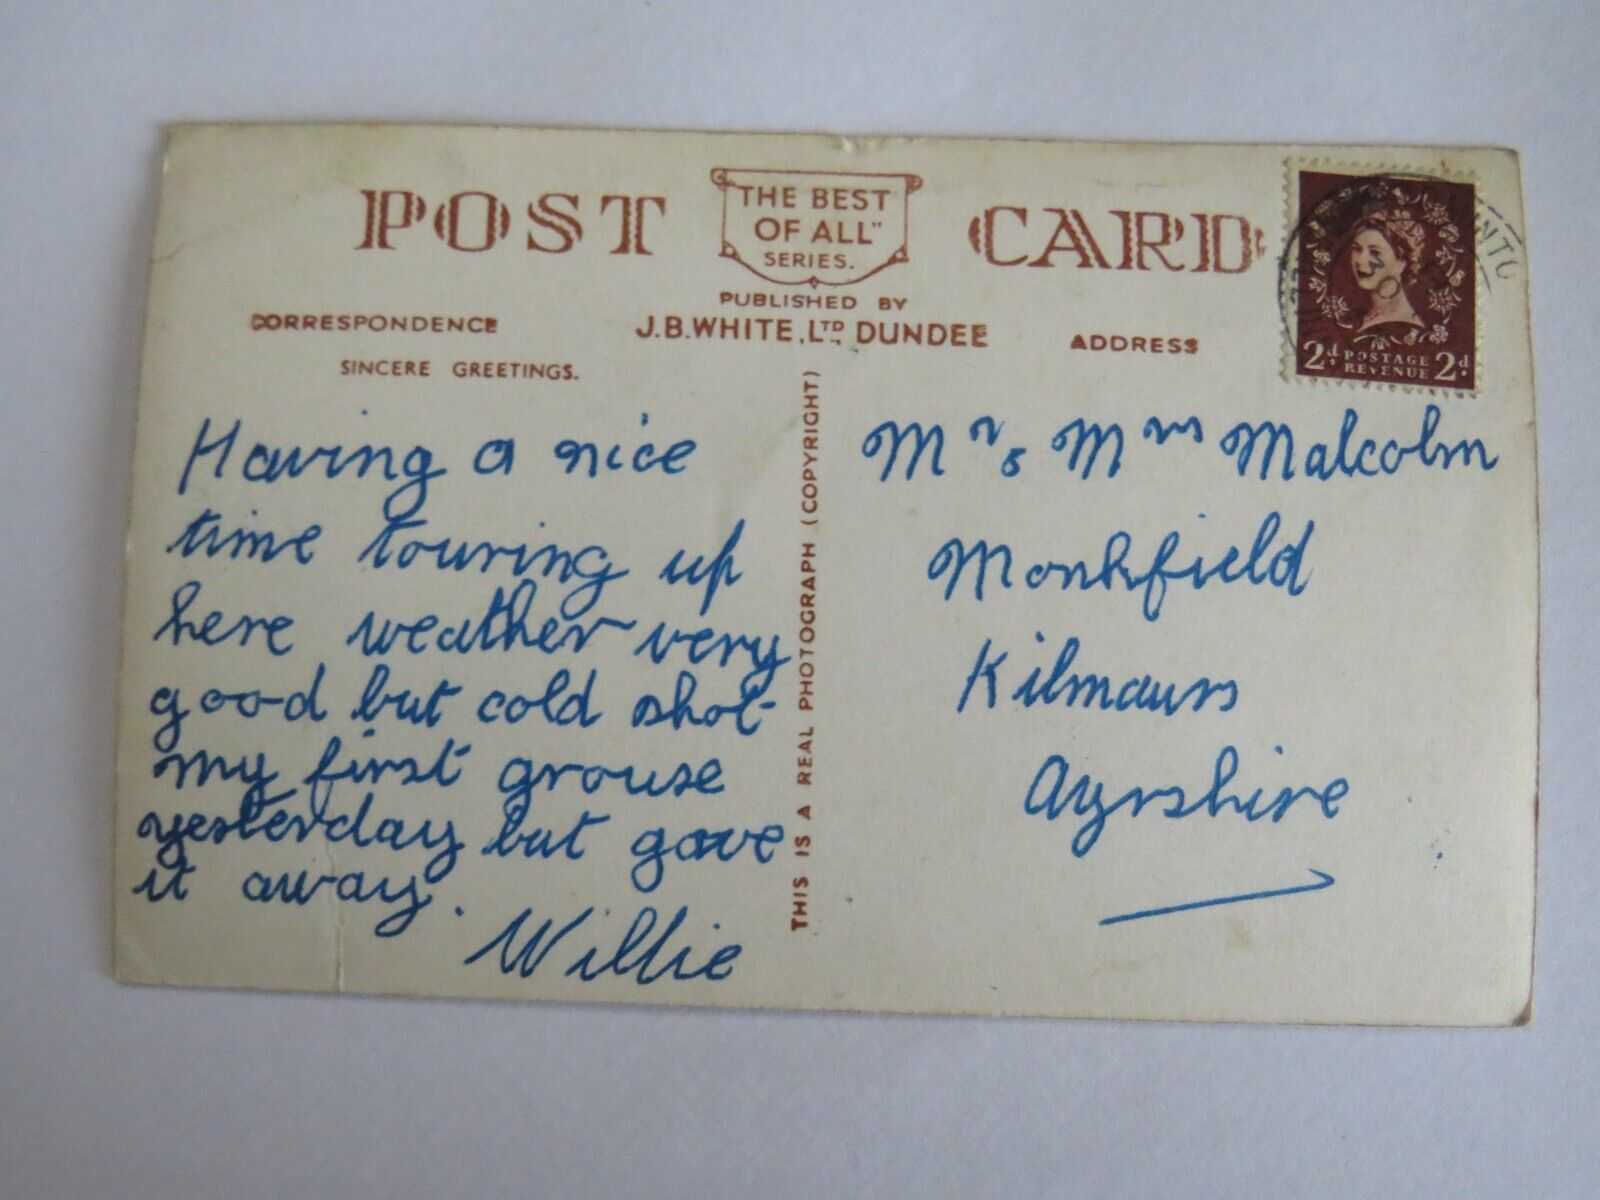 POST CARD
"THE BEST
OF ALL"
SERIES.
PUBLISHED BY
J.B. WHITE, LTD. DUNDEE
CORRESPONDENCE
SINCERE GREETINGS.
ADDRESS
Having a nice
time touring up
here weather very
good but cold shot
my first grouse
yesterday but gave
it away.
Willie
THIS IS A REAL PHOTOGRAPH (COPYRIGHT)
2d. POSTAGE 2d.
REVENUE
30
Mr & Mrs Malcolm
Monkfield
Kilmaurs
Ayrshire